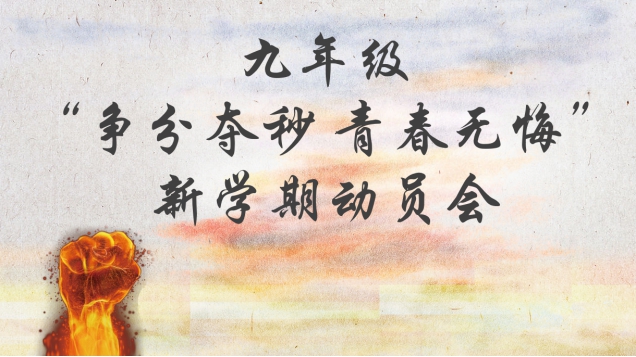 九年级
“争分夺秒 青春无悔”
新学期动员会